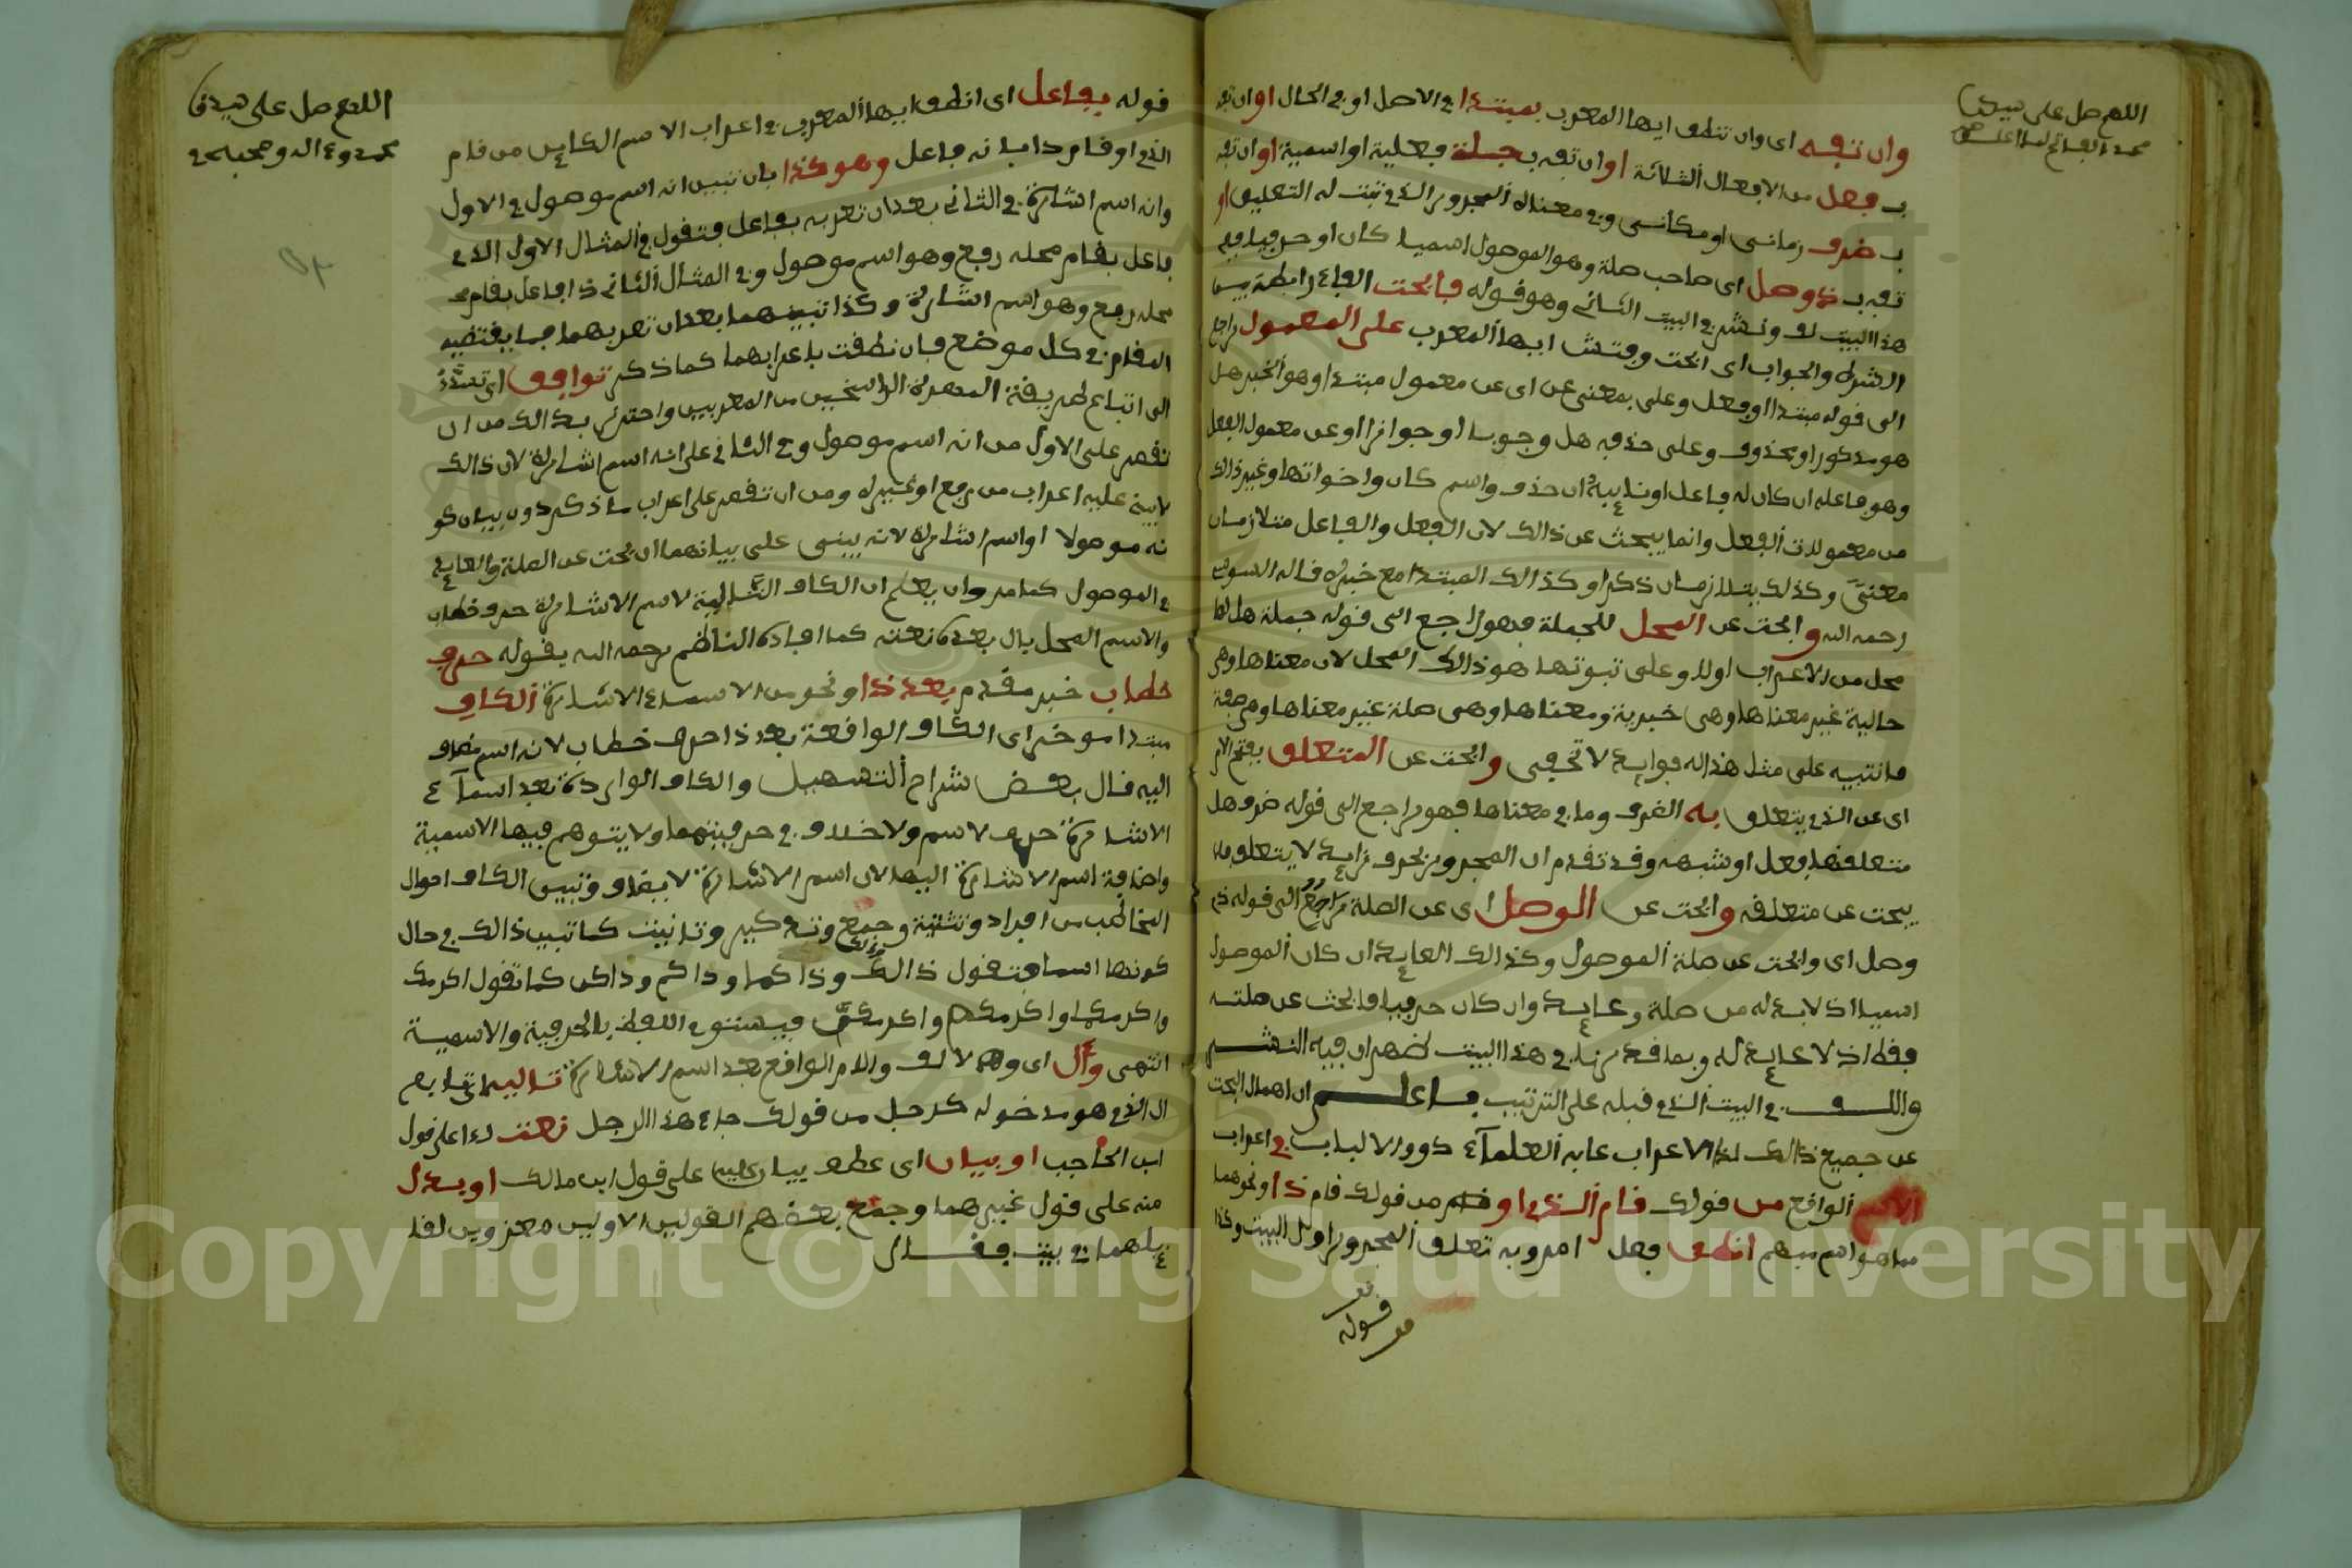 اللهم صل على سيدنا
وان تفه اى وان تنطق ايها المعرب بمبتدا في الاصل او في الحال او ان تفه
ب فعل من الافعال الثلاثة او ان تفه ب جملة فعلية او اسمية او ان تفه
ب ظرف زماني او مكاني وفي معناه المجرور الذي تبث له التعليق او
تفه ب ذو وصل اى صاحب صلة وهو الموصول اسميا كان او حرفيا ففي
هذا البيت لف ونشر في البيت الثاني وهو قوله فابحث الفاء رابطة بين
الشرط والجواب اى ابحث وفتش ايها المعرب على المعمول راجع
الى قوله مبتدا او فعل وعلى بمعنى عن اى عن معمول مبتدا وهو الخبر هل
هو مذكور او محذوف وعلى حذفه هل وجوبا او جوازا او عن معمول الفعل
وهو فاعله ان كان له فاعل او نايبه ان حذف واسم كان واخواتها وغير ذالك
من معمولات الفعل وانما يبحث عن ذالك لان الفعل والفاعل متلازمان
معنى وكذلك يتلازمان ذكرا وكذالك المبتدا مع خبره قاله السوسي
رحمه الله وابحث عن المحل للجملة فهو راجع الى قوله جملة هل لها
محل من الاعراب اولا وعلى ثبوتها هو ذالك المحل لان معناها وهي
حالية غير معناها وهي خبرية ومعناها وهي صلة غير معناها وهي صفة
فانتبيه على مثل هذا له فوايد لا تخفى وابحث عن المتعلق بفتح الام
اى عن الذي يتعلق به الظرف وما في معناها فهو راجع الى قوله ظرف هل
متعلقها فعل او شبهه وقد تقدم ان المجرور بحرف زايد لا يتعلق فلا
يبحث عن متعلقه وابحث عن الوصل اى عن الصلة راجع الى قوله ذو
وصل اى وابحث عن صلة الموصول وكذالك العايد ان كان الموصول
اسميا اذ لا بد له من صلة وعايد وان كان حرفيا فابحث عن صلته
فقط اذ لا عايد له وبما قدرنا في هذا البيت لف وفيه النشر
واللف في البيت الذي قبله على الترتيب فاعلم ان اهمال البحث
عن جميع ذالك لذا الاعراب عابه العلماء ذوو الالباب في اعراب
الاسم الواقع من قولك قام الذي او قام من قولك قام ذا ونحوهما
مما هو اسم مبهم انطق فعل امر وبه تعلق المجرور اول البيت وكذا
قوله
اللهم صل على سيدنا
محمد وءاله وصحبه
قوله بفاعل اى انطق ايها المعرب في اعراب الاسم الكاين من قام
الذي او قام ذا بانه فاعل وهو كذا بان تبين انه اسم موصول في الاول
وانه اسم اشارة في الثاني بعد ان تعربه بفاعل فتقول في المثال الاول الذي
فاعل بقام محله رفع وهو اسم موصول وفي المثال الثاني ذا فاعل بقام
محله رفع وهو اسم اشارة وكذا تبينهما بعد ان تعربهما بما يقتضيه
المقام في كل موضع فان نطقت باعرابهما كما ذكر توافق اى ترشد
الى اتباع طريقة المهرة الراسخين من المعربين واحترز بذالك من ان
تقصر على الاول من انه اسم موصول وفي الثاني على انه اسم اشارة لان ذالك
لا يبنى عليه اعراب من رفع او غيره ومن ان تقصر على اعراب ما ذكر دون بيان كو
نه موصولا او اسم اشارة لانه يبنى على بيانهما ان يبحث عن الصلة والعايد
في الموصول كما مر وان يعلم ان الكاف التالية لاسم الاشارة حرف خطاب
والاسم المحل بال بعده نعته كما افاده الناظم رحمه الله بقوله حرف
خطاب خبر مقدم بعد ذا ونحو من الاسماء الاشارة الكاف
مبتدا موخر اى الكاف الواقعة بعد ذا حرف خطاب لانه اسم مضاف
اليه قال بعض شراح التسهيل والكاف الواردة بعد اسماء
الاشارة حرف لا اسم ولا خلاف في حرفيتهما ولا يتوهم فيها الاسمية
واضافة اسم الاشارة اليها لان اسم الاشارة لا يضاف وتبين الكاف احوال
المخاطب من افراد وتثنية وجمع وتذكير وتانيث كما تبين ذالك في حال
كونها اسما فتقول ذالك وذاكما وذاكم وذاكن كما تقول اكرمك
واكرمكما واكرمكم واكرمكن فيستوي اللفظ بالحرفية والاسمية
انتهى وال اى والالف والام الواقع بعد اسم الاشارة تاليها تابع
ال الذي هو مدخوله كرجل من قولك جاء هذا الرجل نعت له على قول
ابن الحاجب او بيان اى عطف بيان عليه على قول ابن مالك او بدل
منه على قول غيرهما وجمع بعضهم القولين الاولين معزوين لقا
يلهما في بيت فقال
Copyright © King Saud University